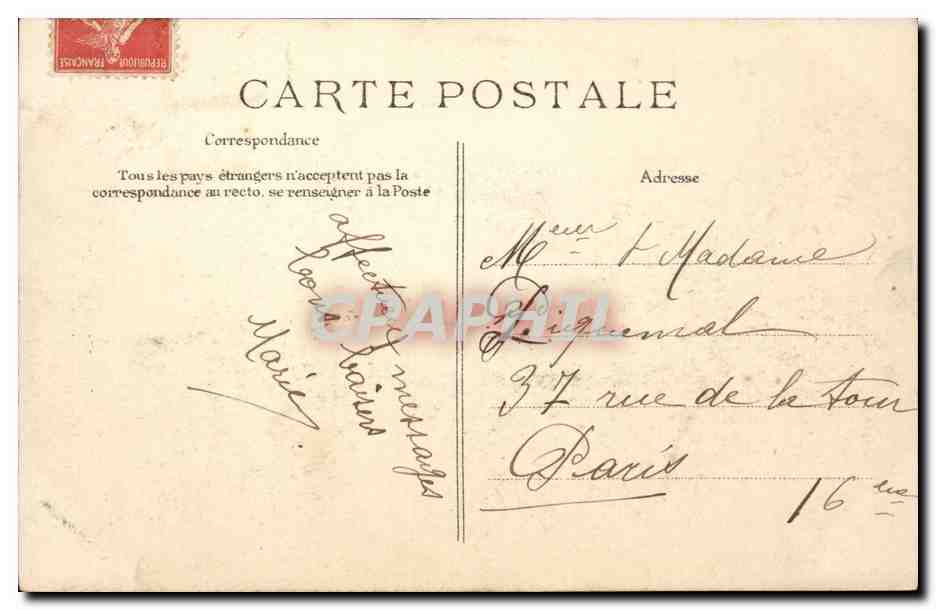 RÉPUBLIQUE FRANÇAISE
CARTE POSTALE
Correspondance
Tous les pays étrangers n'acceptent pas la
correspondance au recto, se renseigner à la Poste
Adresse
affectueux messages
bons baisers
Marie
Meur & Madame
37 rue de la tour
Paris
16
CPAPHIL